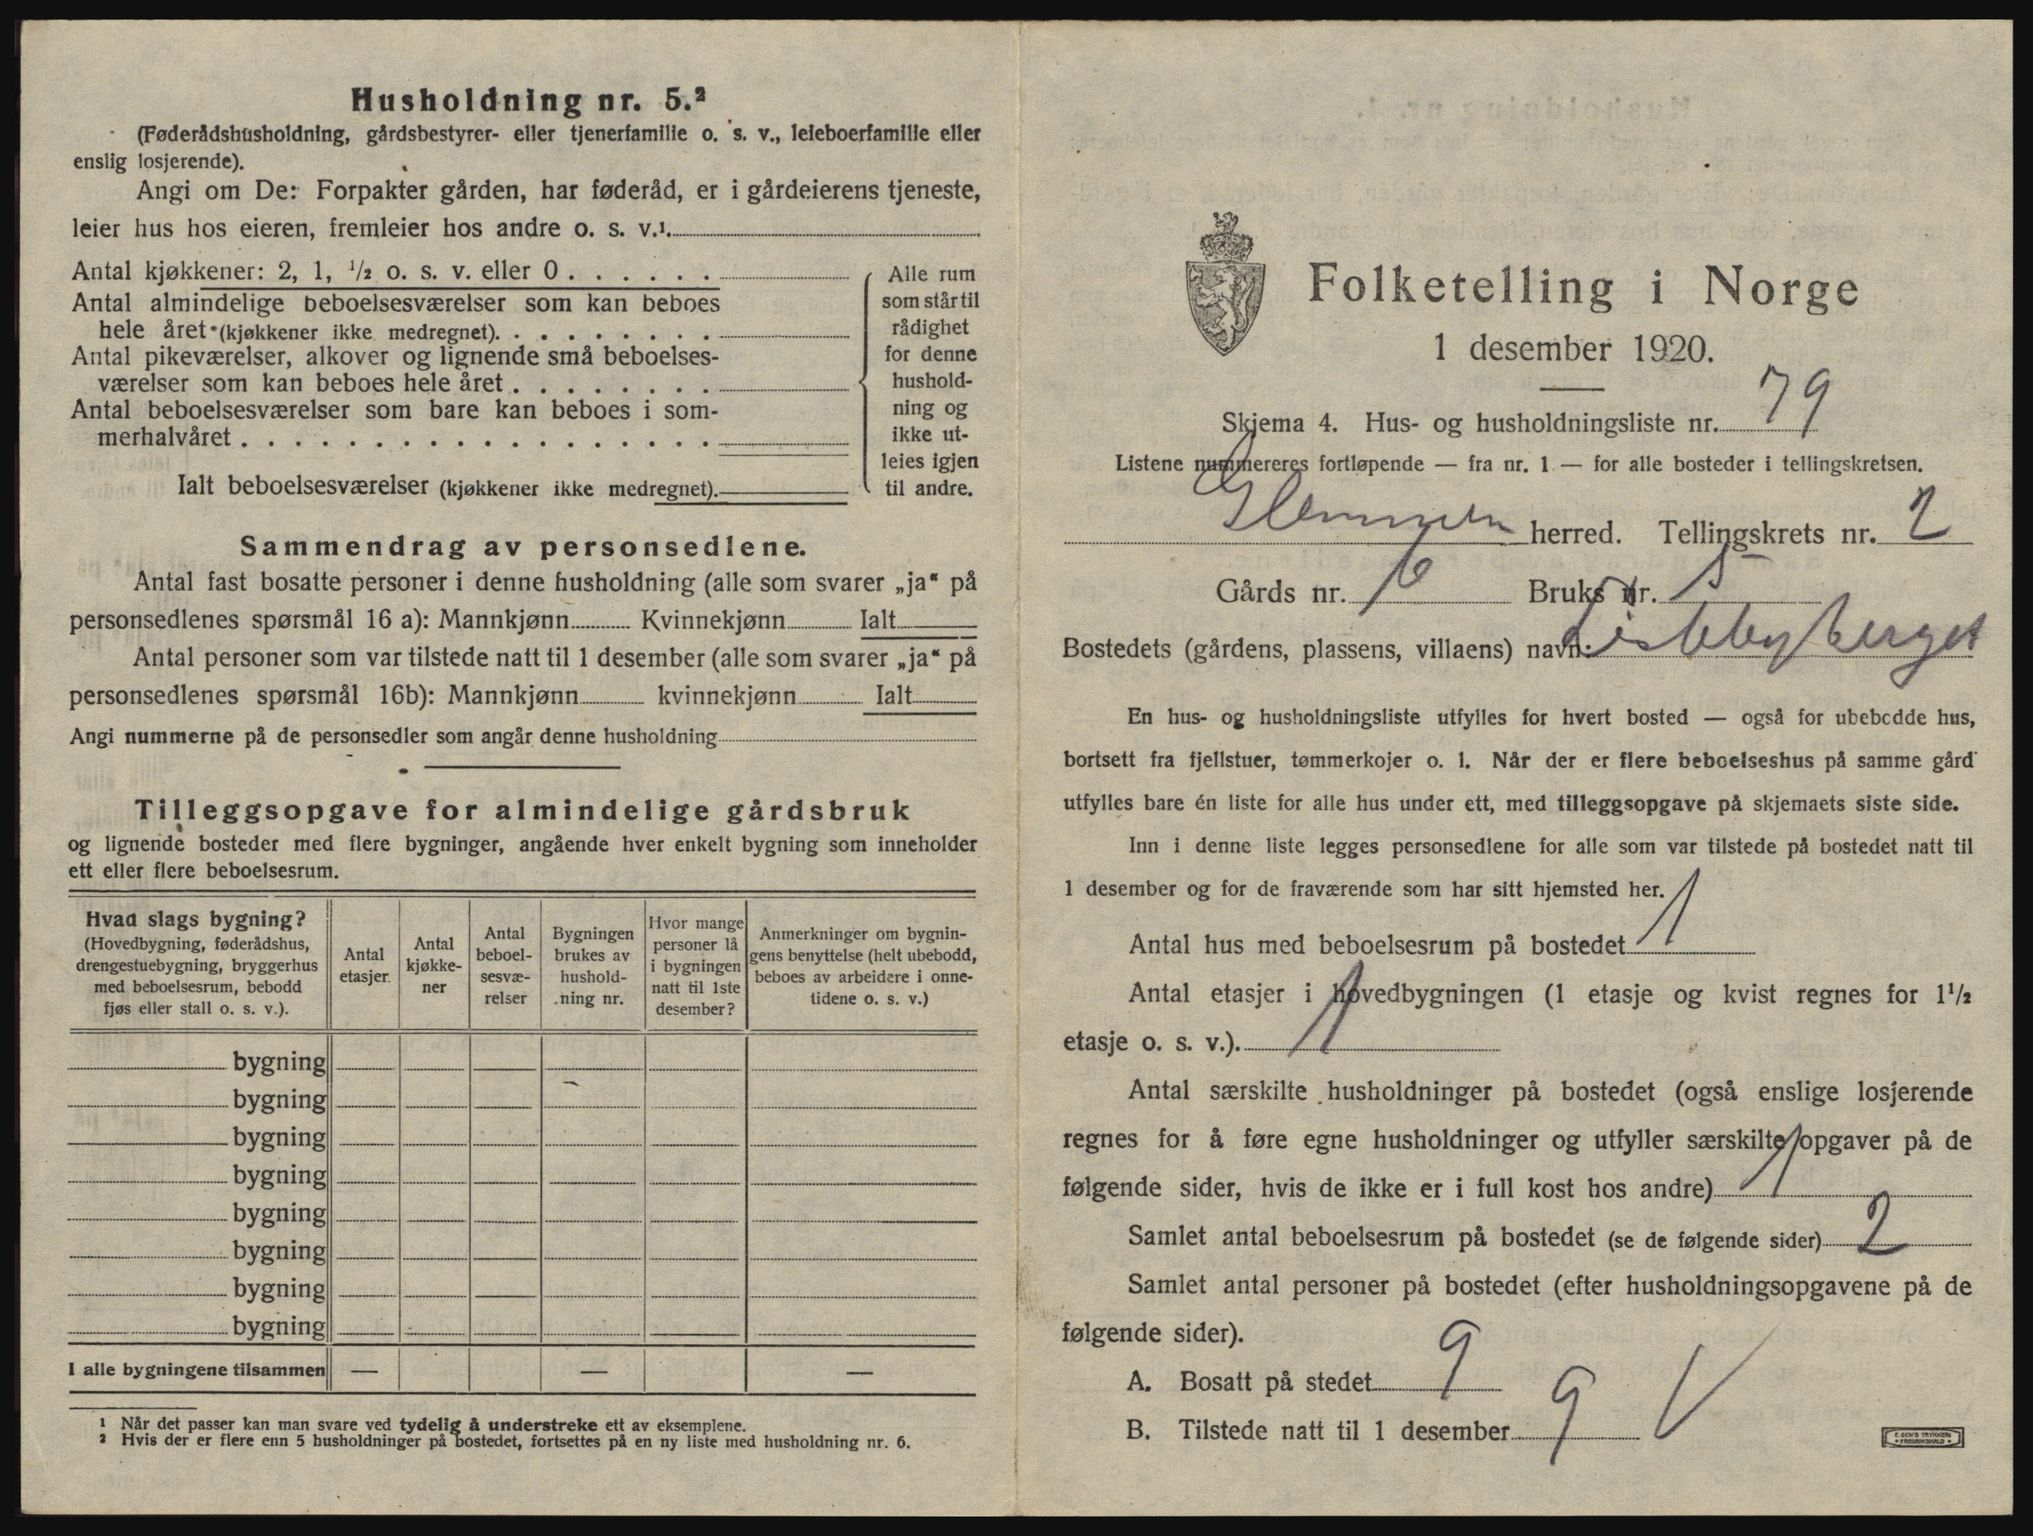 Husholdning nr. 5.²
(Føderådshusholdning, gårdsbestyrer- eller tjenerfamilie o. s. v., leieboerfamilie eller
enslig losjerende).
Angi om De: Forpakter gården, har føderåd, er i gårdeierens tjeneste,
leier hus hos eieren, fremleier hos andre o. s. v.¹.
Antal kjøkkener: 2, 1, ½ o. s. v. eller 0 . . . . . .
Antal almindelige beboelsesværelser som kan beboes
hele året (kjøkkener ikke medregnet). . . . . . . . .
Antal pikeværelser, alkover og lignende små beboelses-
værelser som kan beboes hele året . . . . . . . .
Antal beboelsesværelser som bare kan beboes i som-
merhalvåret . . . . . . . . . . . . . . . . . .
Ialt beboelsesværelser (kjøkkener ikke medregnet).
Alle rum
som står til
rådighet
for denne
hushold-
ning og
ikke ut-
leies igjen
til andre.
Sammendrag av personsedlene.
Antal fast bosatte personer i denne husholdning (alle som svarer „ja“ på
personsedlenes spørsmål 16 a): Mannkjønn Kvinnekjønn Ialt
Antal personer som var tilstede natt til 1 desember (alle som svarer „ja“ på
personsedlenes spørsmål 16b): Mannkjønn kvinnekjønn Ialt
Angi nummerne på de personsedler som angår denne husholdning
Tilleggsopgave for almindelige gårdsbruk
og lignende bosteder med flere bygninger, angående hver enkelt bygning som inneholder
ett eller flere beboelsesrum.
Hvad slags bygning?
(Hovedbygning, føderådshus,
drengestuebygning, bryggerhus
med beboelsesrum, bebodd
fjøs eller stall o. s. v.).
Antal
etasjer.
Antal
kjøkke-
ner
Antal
beboel-
sesvæ-
relser
Bygningen
brukes av
hushold-
ning nr.
Hvor mange
personer lå
i bygningen
natt til 1ste
desember?
Anmerkninger om bygnin-
gens benyttelse (helt ubebodd,
beboes av arbeidere i onne-
tidene o. s. v.)
bygning
bygning
bygning
bygning
bygning
bygning
bygning
bygning
I alle bygningene tilsammen — — —
¹ Når det passer kan man svare ved tydelig å understreke ett av eksemplene.
² Hvis der er flere enn 5 husholdninger på bostedet, fortsettes på en ny liste med husholdning nr. 6.
Folketelling i Norge
1 desember 1920.
Skjema 4. Hus- og husholdningsliste nr. 79
Listene nummereres fortløpende — fra nr. 1 — for alle bosteder i tellingskretsen.
Glemmen herred. Tellingskrets nr. 2
Gårds nr. 6 Bruks nr. 5
Bostedets (gårdens, plassens, villaens) navn: Lisleby berget
En hus- og husholdningsliste utfylles for hvert bosted — også for ubebodde hus,
bortsett fra fjellstuer, tømmerkojer o. l. Når der er flere beboelseshus på samme gård
utfylles bare én liste for alle hus under ett, med tilleggsopgave på skjemaets siste side.
Inn i denne liste legges personsedlene for alle som var tilstede på bostedet natt til
1 desember og for de fraværende som har sitt hjemsted her.
Antal hus med beboelsesrum på bostedet 1
Antal etasjer i hovedbygningen (1 etasje og kvist regnes for 1½
etasje o. s. v.). 1
Antal særskilte husholdninger på bostedet (også enslige losjerende
regnes for å føre egne husholdninger og utfyller særskilte opgaver på de
følgende sider, hvis de ikke er i full kost hos andre) 1
Samlet antal beboelsesrum på bostedet (se de følgende sider) 2
Samlet antal personer på bostedet (efter husholdningsopgavene på de
følgende sider).
A. Bosatt på stedet 9
B. Tilstede natt til 1 desember 9 V